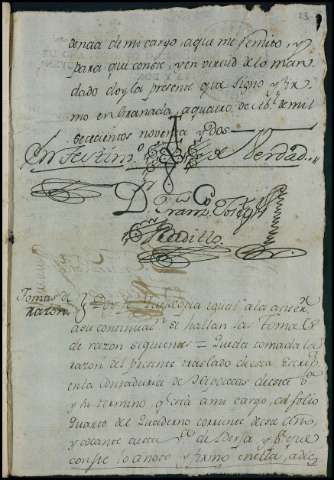 dencia de mi cargo, a que me remito, y
para que conste, y en virtud de lo man
dado doy la presente que signo y fir
mo en Granada, a quatro de de mil
setecientos noventa y dos
En Testimo.º de Verdad
D.n Fran.co
Padillo
Tomas de
razon
Por igual a la anter.r
a su continuas.n se hallan las tomas
de razon siguientes = Queda tomada la
razon del presente traslado de esta
en la Contaduria de Hipotecas de esta
y su termino, q.e está a mi cargo, al folio
quarto del Quaderno corriente de este año,
y tocante a la de y p.a q.e
conste lo anoto y firmo en ella, a diez